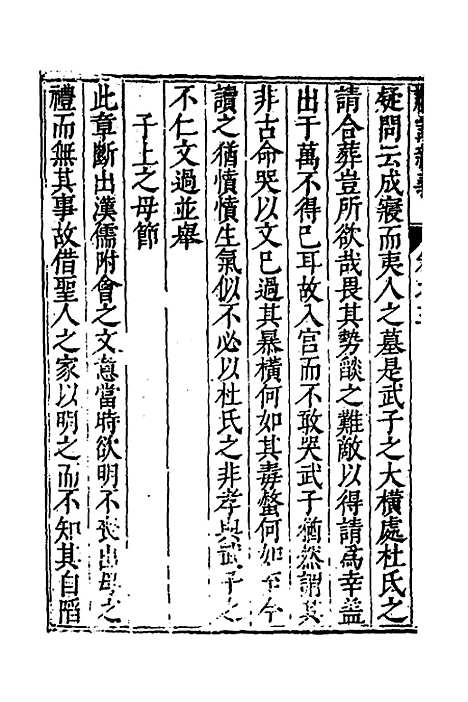 疑問云成寢而夷人之墓是武子之大橫處杜氏之
請合葬豈所欲哉畏其勢燄之難敵以得請為幸益
出千萬不得已耳故入宮而不敢哭武子猶然謂其
非古命哭以文已過其暴橫何如其毒螫何如至今
讀之猶憤憤生氣似不必以杜氏之非孝與武子之
不仁文過並舉
子上之母節
此章斷出漢儒附會之文意當時欲明不喪出母之
禮而無其事故借聖人之家以明之而不知其自蹈